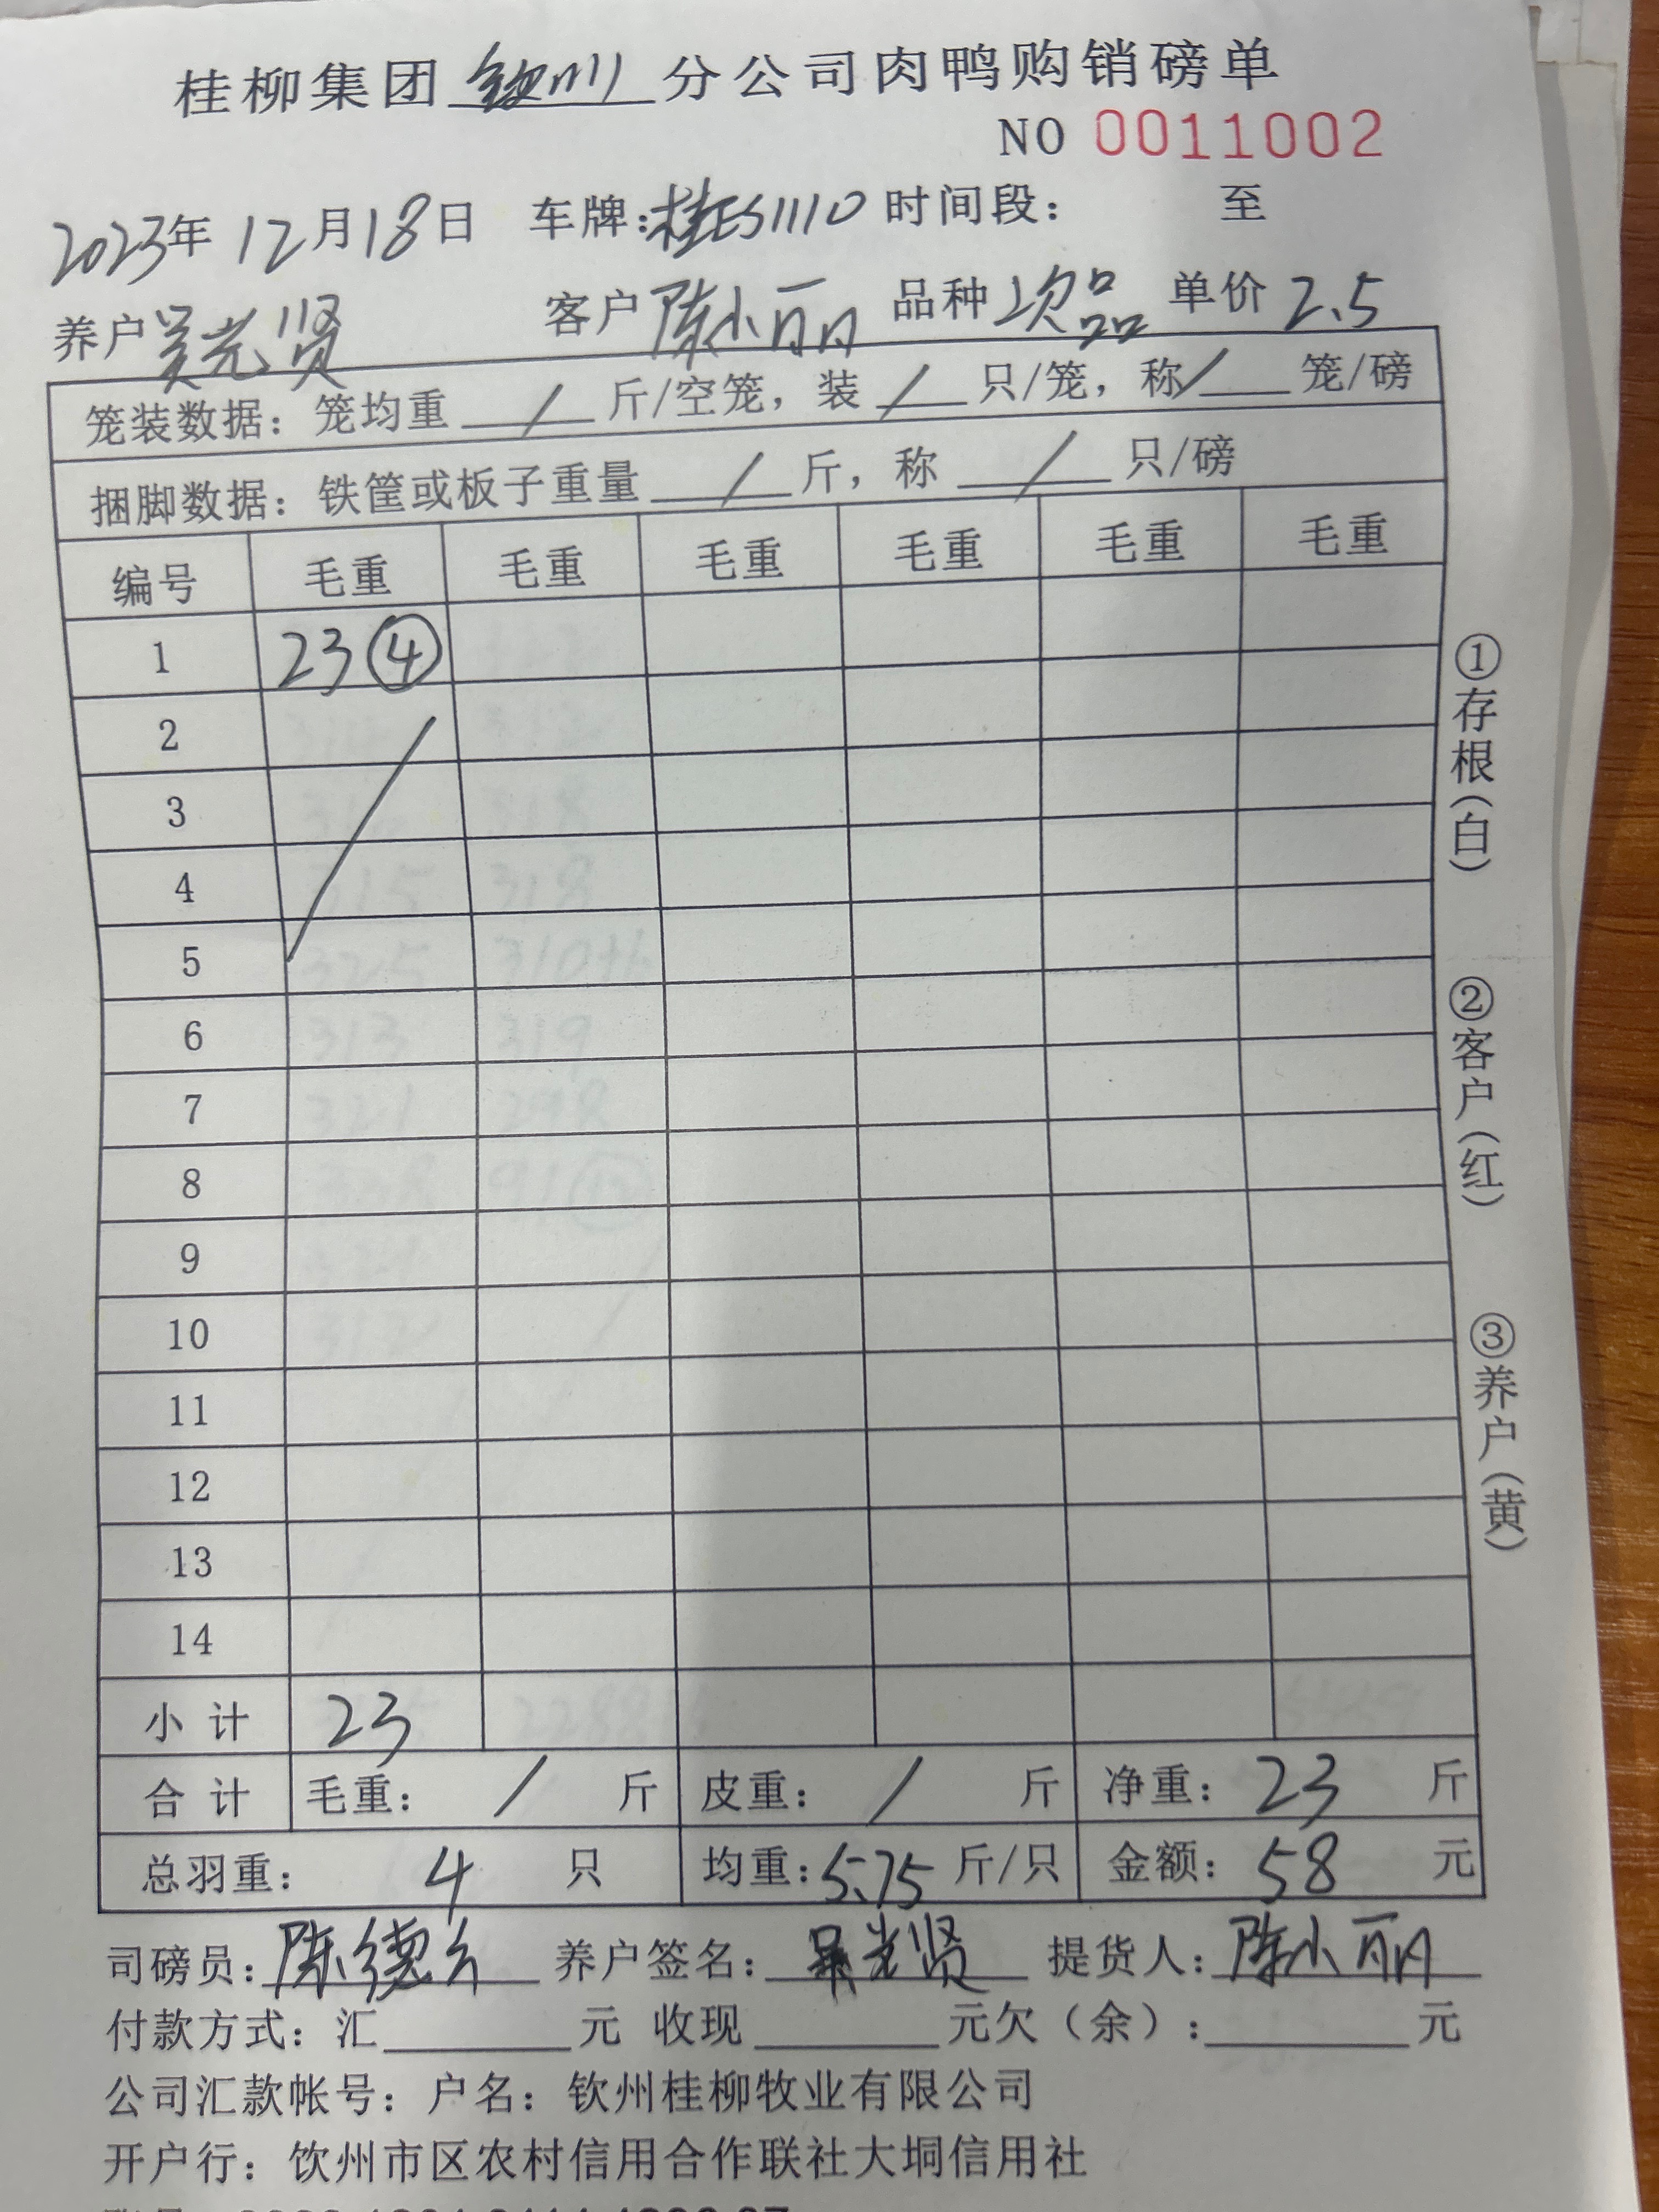 桂柳集团钦州分公司肉鸭购销磅单
NO 0011002
2023年12月18日 车牌:桂ES1110 时间段: 至
养户吴光贤 客户陈小丽 品种次品 单价2.5
笼装数据: 笼均重 / 斤/空笼, 装 / 只/笼, 称 / 笼/磅
捆脚数据: 铁筐或板子重量 / 斤, 称 / 只/磅
编号 毛重 毛重 毛重 毛重 毛重 毛重
1 23④
2
3
4
5
6
7
8
9
10
11
12
13
14
小计 23
合计 毛重: / 斤 皮重: / 斤 净重: 23 斤
总羽重: 4 只 均重:5.75斤/只 金额: 58 元
司磅员:陈德 养户签名: 吴光贤 提货人: 陈小丽
付款方式: 汇 元 收现 元欠(余): 元
公司汇款帐号: 户名: 钦州桂柳牧业有限公司
开户行: 钦州市区农村信用合作联社大垌信用社
①存根(白)
②客户(红)
③养户(黄)